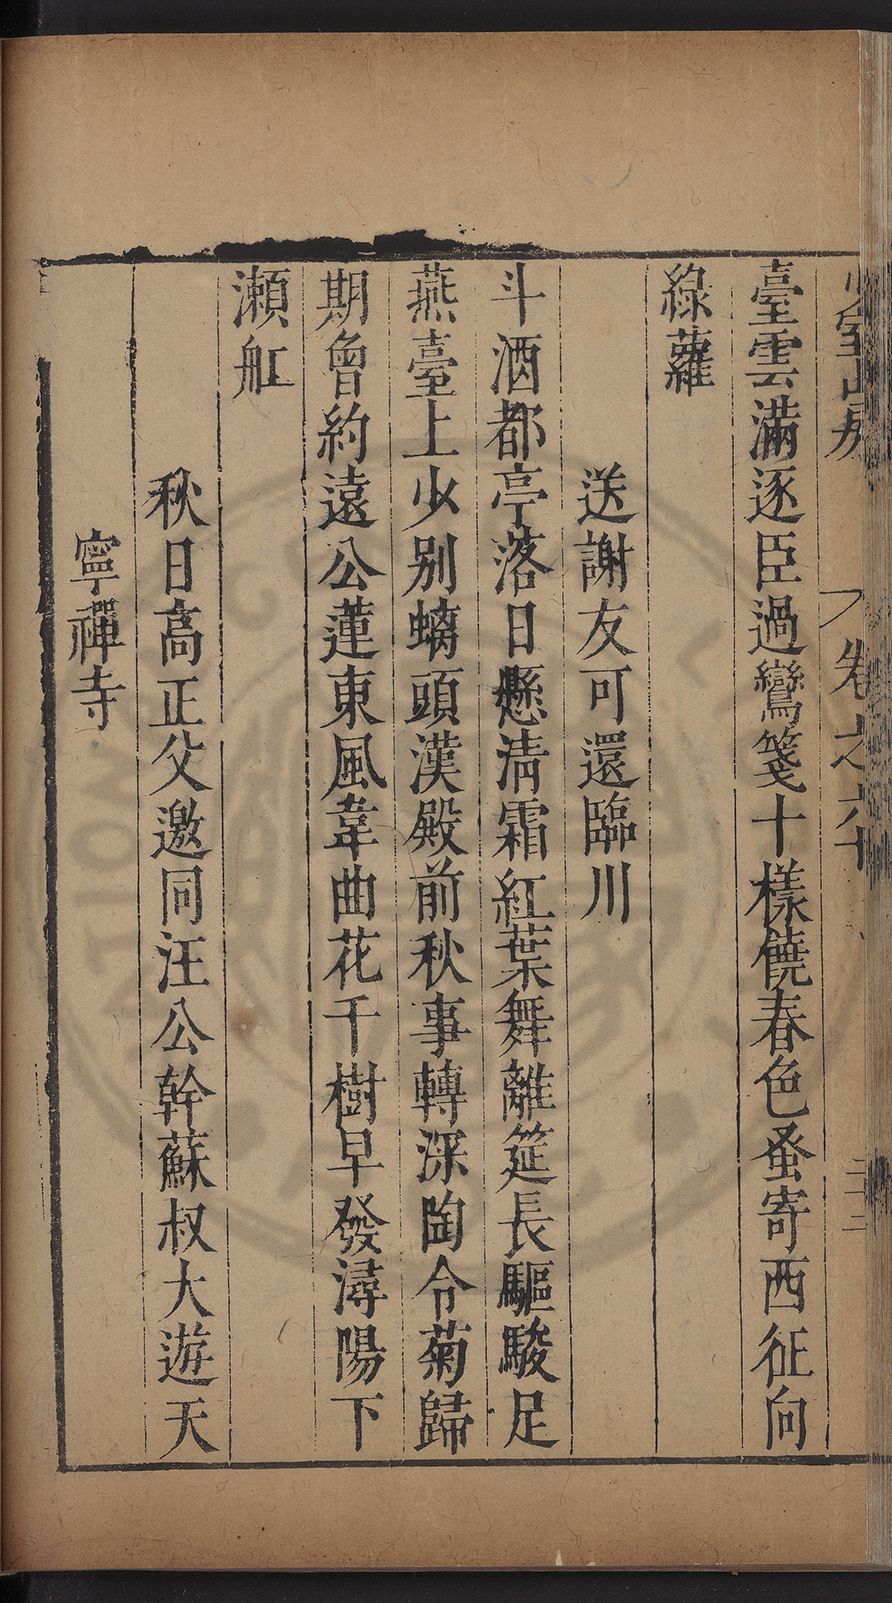 臺雲滿逐臣過鸞箋十樣饒春色蚤寄西征向
綠蘿
送謝友可還臨川
斗酒都亭落日懸清霜紅葉舞離筵長驅駿足
燕臺上少别螭頭漢殿前秋事轉深陶令菊歸
期會約遠公蓮東風韋曲花千樹早發潯陽下
瀬舡
秋日高正父邀同汪公幹蘇叔大遊天
寧禪寺